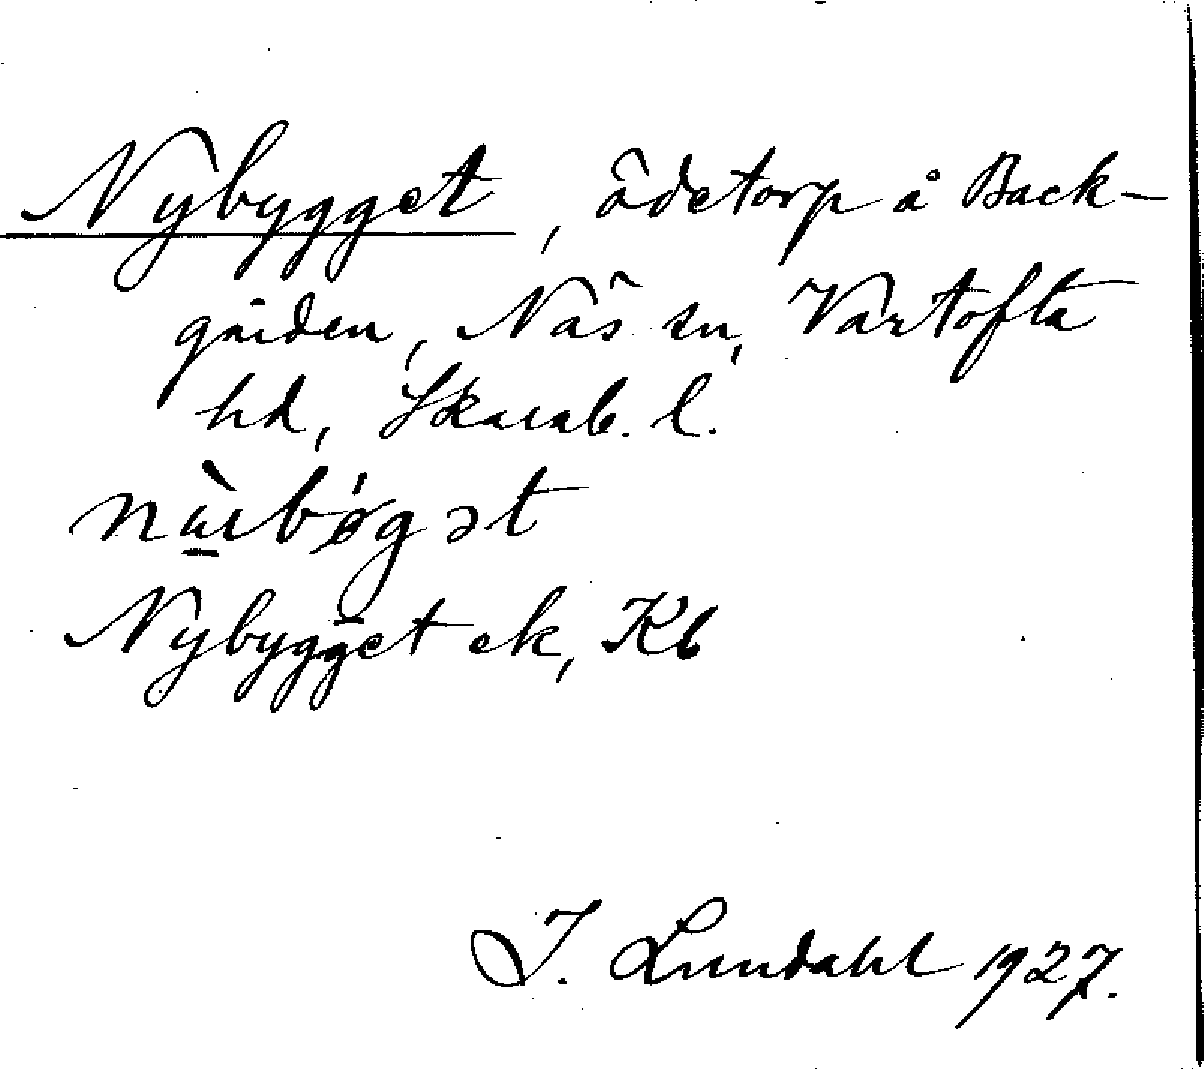 Nybygget, ödetorp å Back-
gården, Näs sn, Vartofta
hd, Skarab. l.
Nybygget ek, Kb
I. Lundahl 1927.